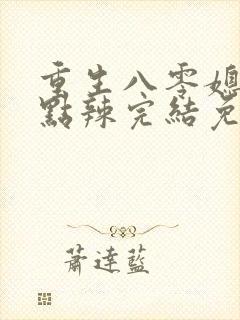 重生八零媳
點辣完結免
蕭達藍